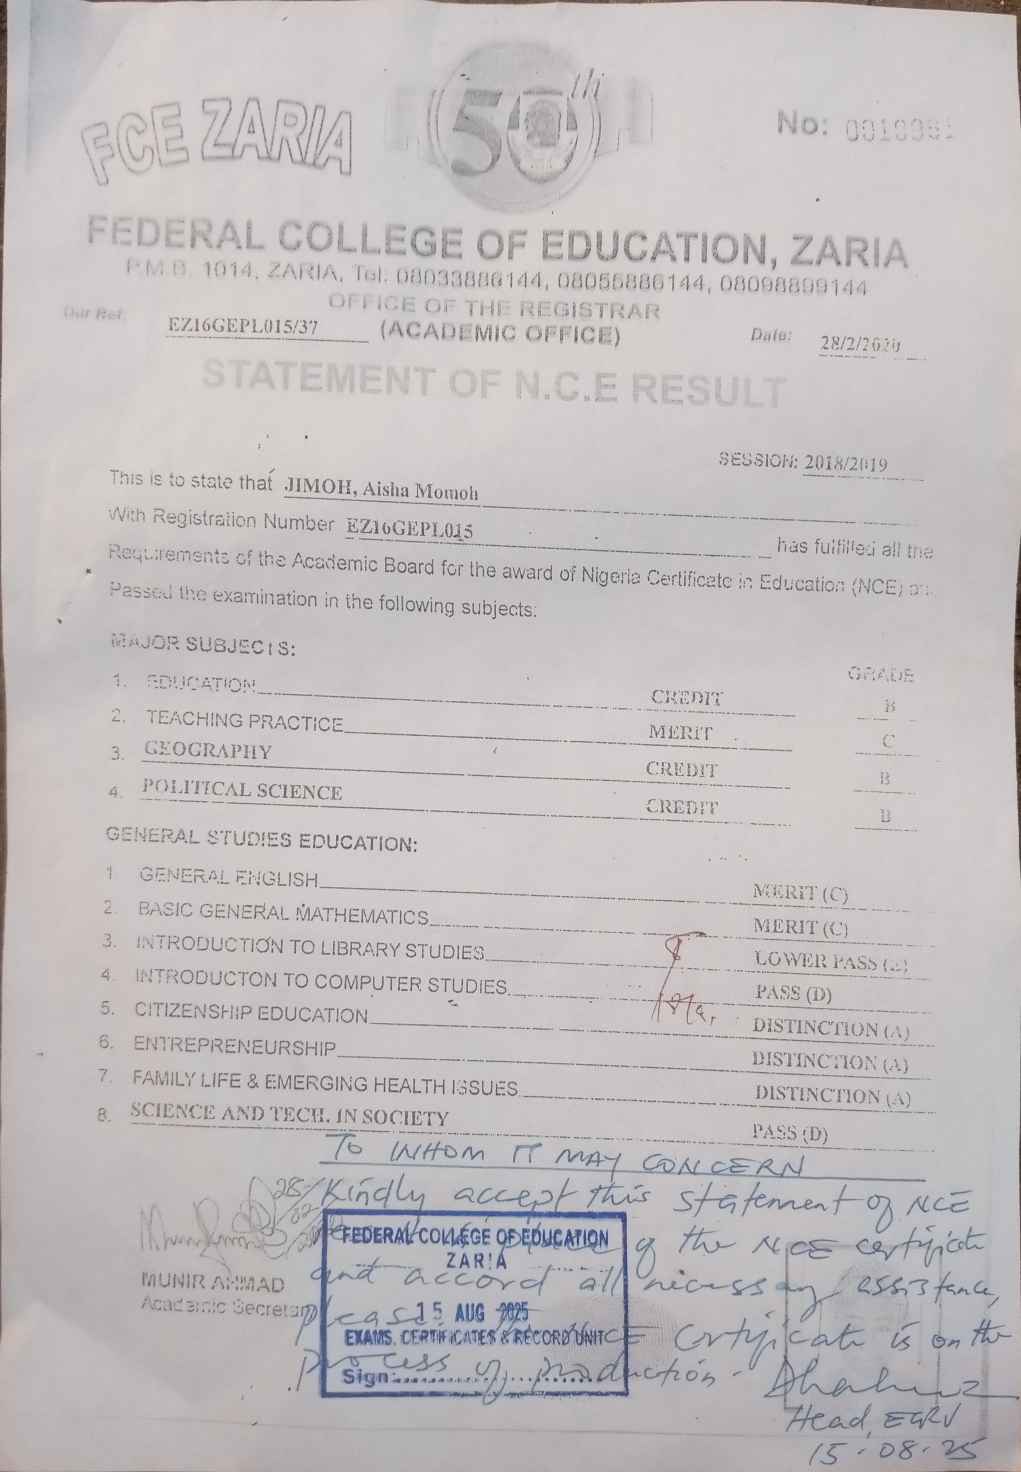 FCE ZARIA
50th
No:
FEDERAL COLLEGE OF EDUCATION, ZARIA
P.M.B. 1014, ZARIA, Tel: 08033886144, 08055886144, 08098899144
OFFICE OF THE REGISTRAR
Our Ref: EZ16GEPL015/37 (ACADEMIC OFFICE) Date: 28/2/2020
STATEMENT OF N.C.E RESULT
SESSION: 2018/2019
This is to state that JIMOH, Aisha Momoh
With Registration Number EZ16GEPL015 has fulfilled all the
Requirements of the Academic Board for the award of Nigeria Certificate in Education (NCE) an
Passed the examination in the following subjects:
MAJOR SUBJECTS:
GRADE
1. EDUCATION CREDIT B
2. TEACHING PRACTICE MERIT C
3. GEOGRAPHY CREDIT B
4. POLITICAL SCIENCE CREDIT B
GENERAL STUDIES EDUCATION:
1 GENERAL ENGLISH MERIT (C)
2. BASIC GENERAL MATHEMATICS MERIT (C)
3. INTRODUCTION TO LIBRARY STUDIES LOWER PASS (E)
4. INTRODUCTON TO COMPUTER STUDIES PASS (D)
5. CITIZENSHIP EDUCATION DISTINCTION (A)
6. ENTREPRENEURSHIP DISTINCTION (A)
7. FAMILY LIFE & EMERGING HEALTH ISSUES DISTINCTION (A)
8. SCIENCE AND TECH. IN SOCIETY PASS (D)
TO WHOM IT MAY CONCERN
Kindly accept this statement of NCE
of the NCE certificate
and accord all necessary assistance,
please. NCE Certificate is on the
process of production.
Head, ECRU
15-08-25
MUNIR AHMAD
Academic Secretary
FEDERAL COLLEGE OF EDUCATION
ZARIA
15 AUG 2025
EXAMS. CERTIFICATES & RECORD UNIT
Sign: